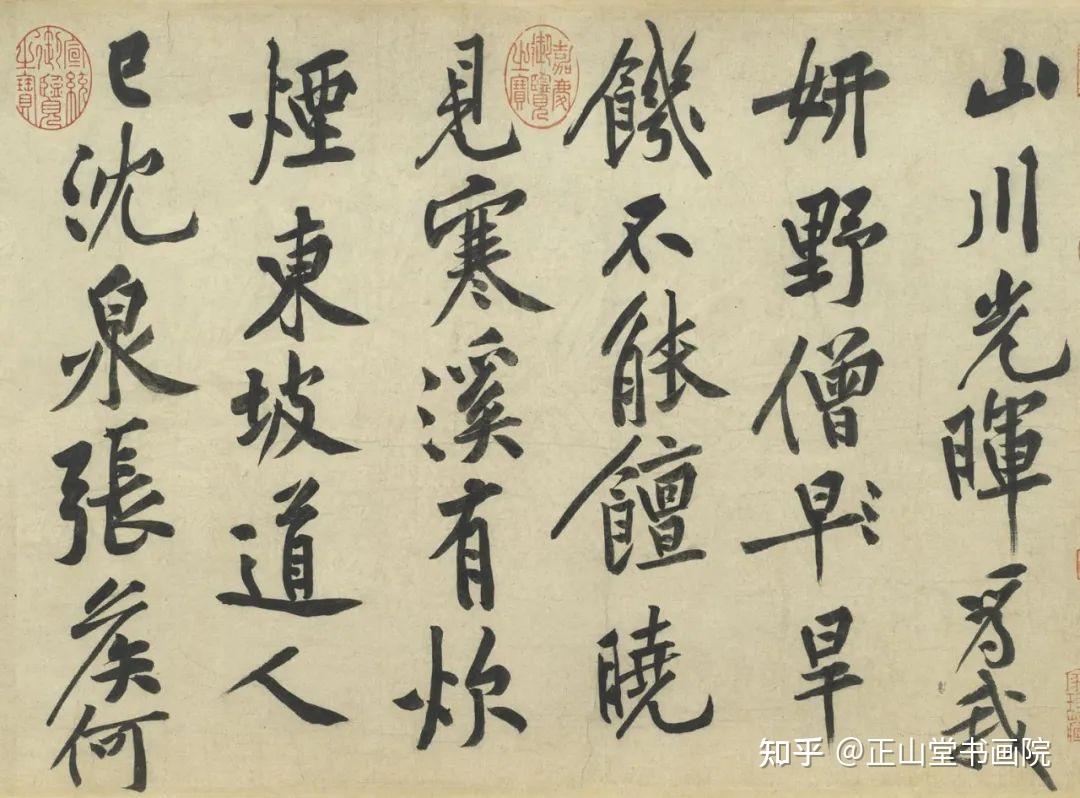 山川光暉爲我
妍野僧早旱
饑不能饘曉
見寒溪有炊
煙東坡道人
已沈泉張矦何
嘉慶御覽之寶
宣統御覽之寶
知乎 @正山堂书画院